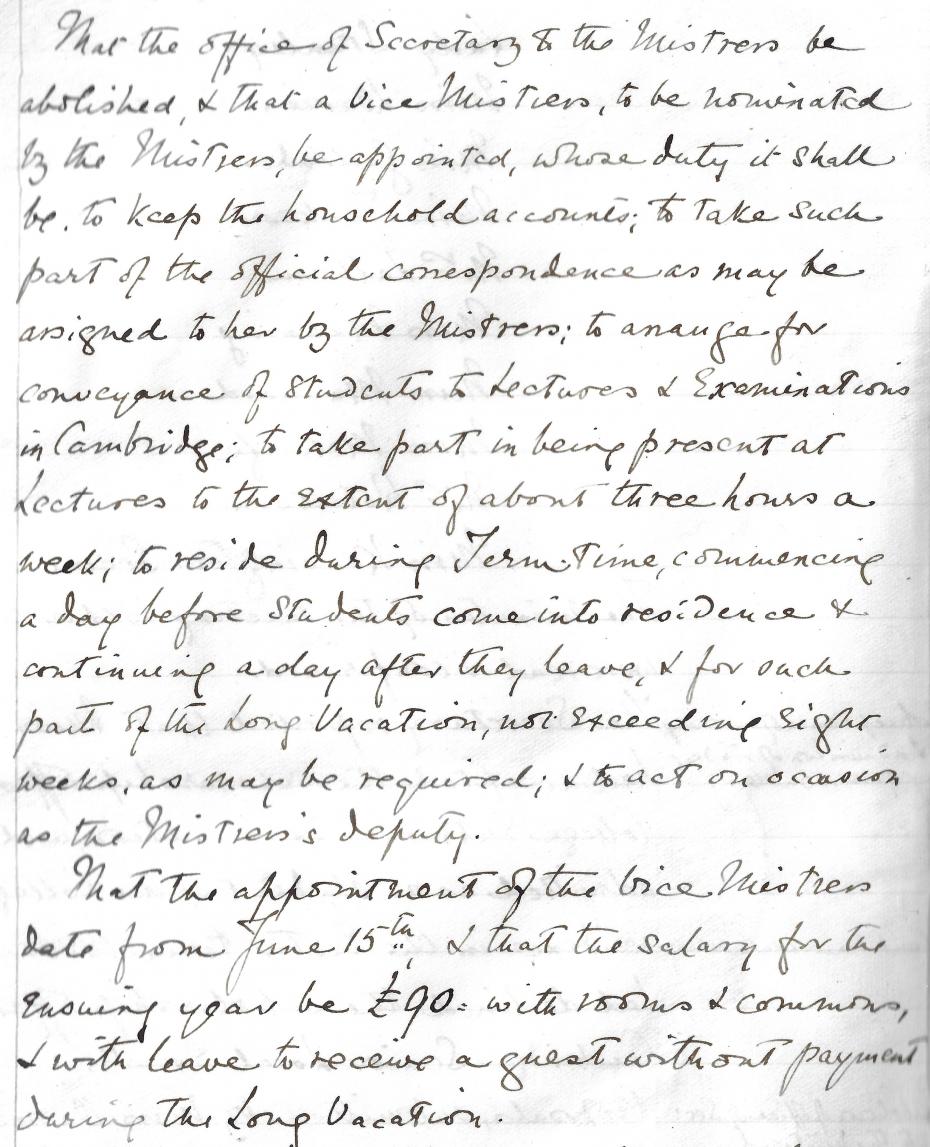 That the office of Secretary to the Mistress be
abolished, & that a Vice Mistress, to be nominated
by the Mistress, be appointed, whose duty it shall
be, to keep the household accounts; to take such
part of the official correspondence as may be
assigned to her by the Mistress; to arrange for
conveyance of Students to Lectures & Examinations
in Cambridge; to take part in being present at
Lectures to the extent of about three hours a
week; to reside during Term Time, commencing
a day before Students come into residence &
continuing a day after they leave, & for such
part of the Long Vacation, not exceeding eight
weeks, as may be required; & to act on occasion
as the Mistress's deputy.
That the appointment of the Vice Mistress
date from June 15th, & that the salary for the
ensuing year be £90: with rooms & commons,
& with leave to receive a guest without payment
during the Long Vacation.